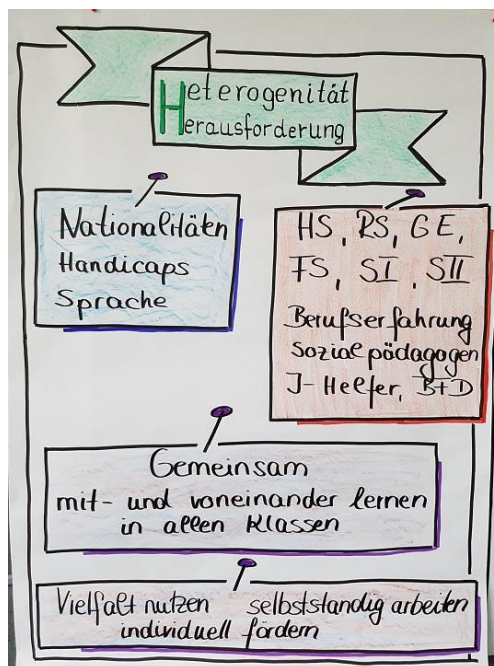 Heterogenität
Herausforderung
Nationalitäten
Handicaps
Sprache
HS, RS, GE,
FS, SI, SII
Berufserfahrung
Sozialpädagogen
I-Helfer, B+D
Gemeinsam
mit- und voneinander lernen
in allen Klassen
Vielfalt nutzen selbstständig arbeiten
individuell fördern